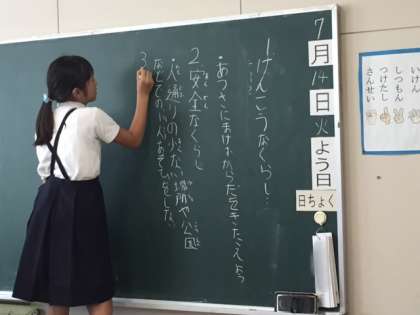 7月14日火よう日
日ちょく
1.けんこうなくらし…
・あつさにまけないからだをきたえよう
2.安全なくらし
・人通りの少ない場所や公園
などでの
あそびをしない
3.
いけん
しつもん
つけたし
さんせい